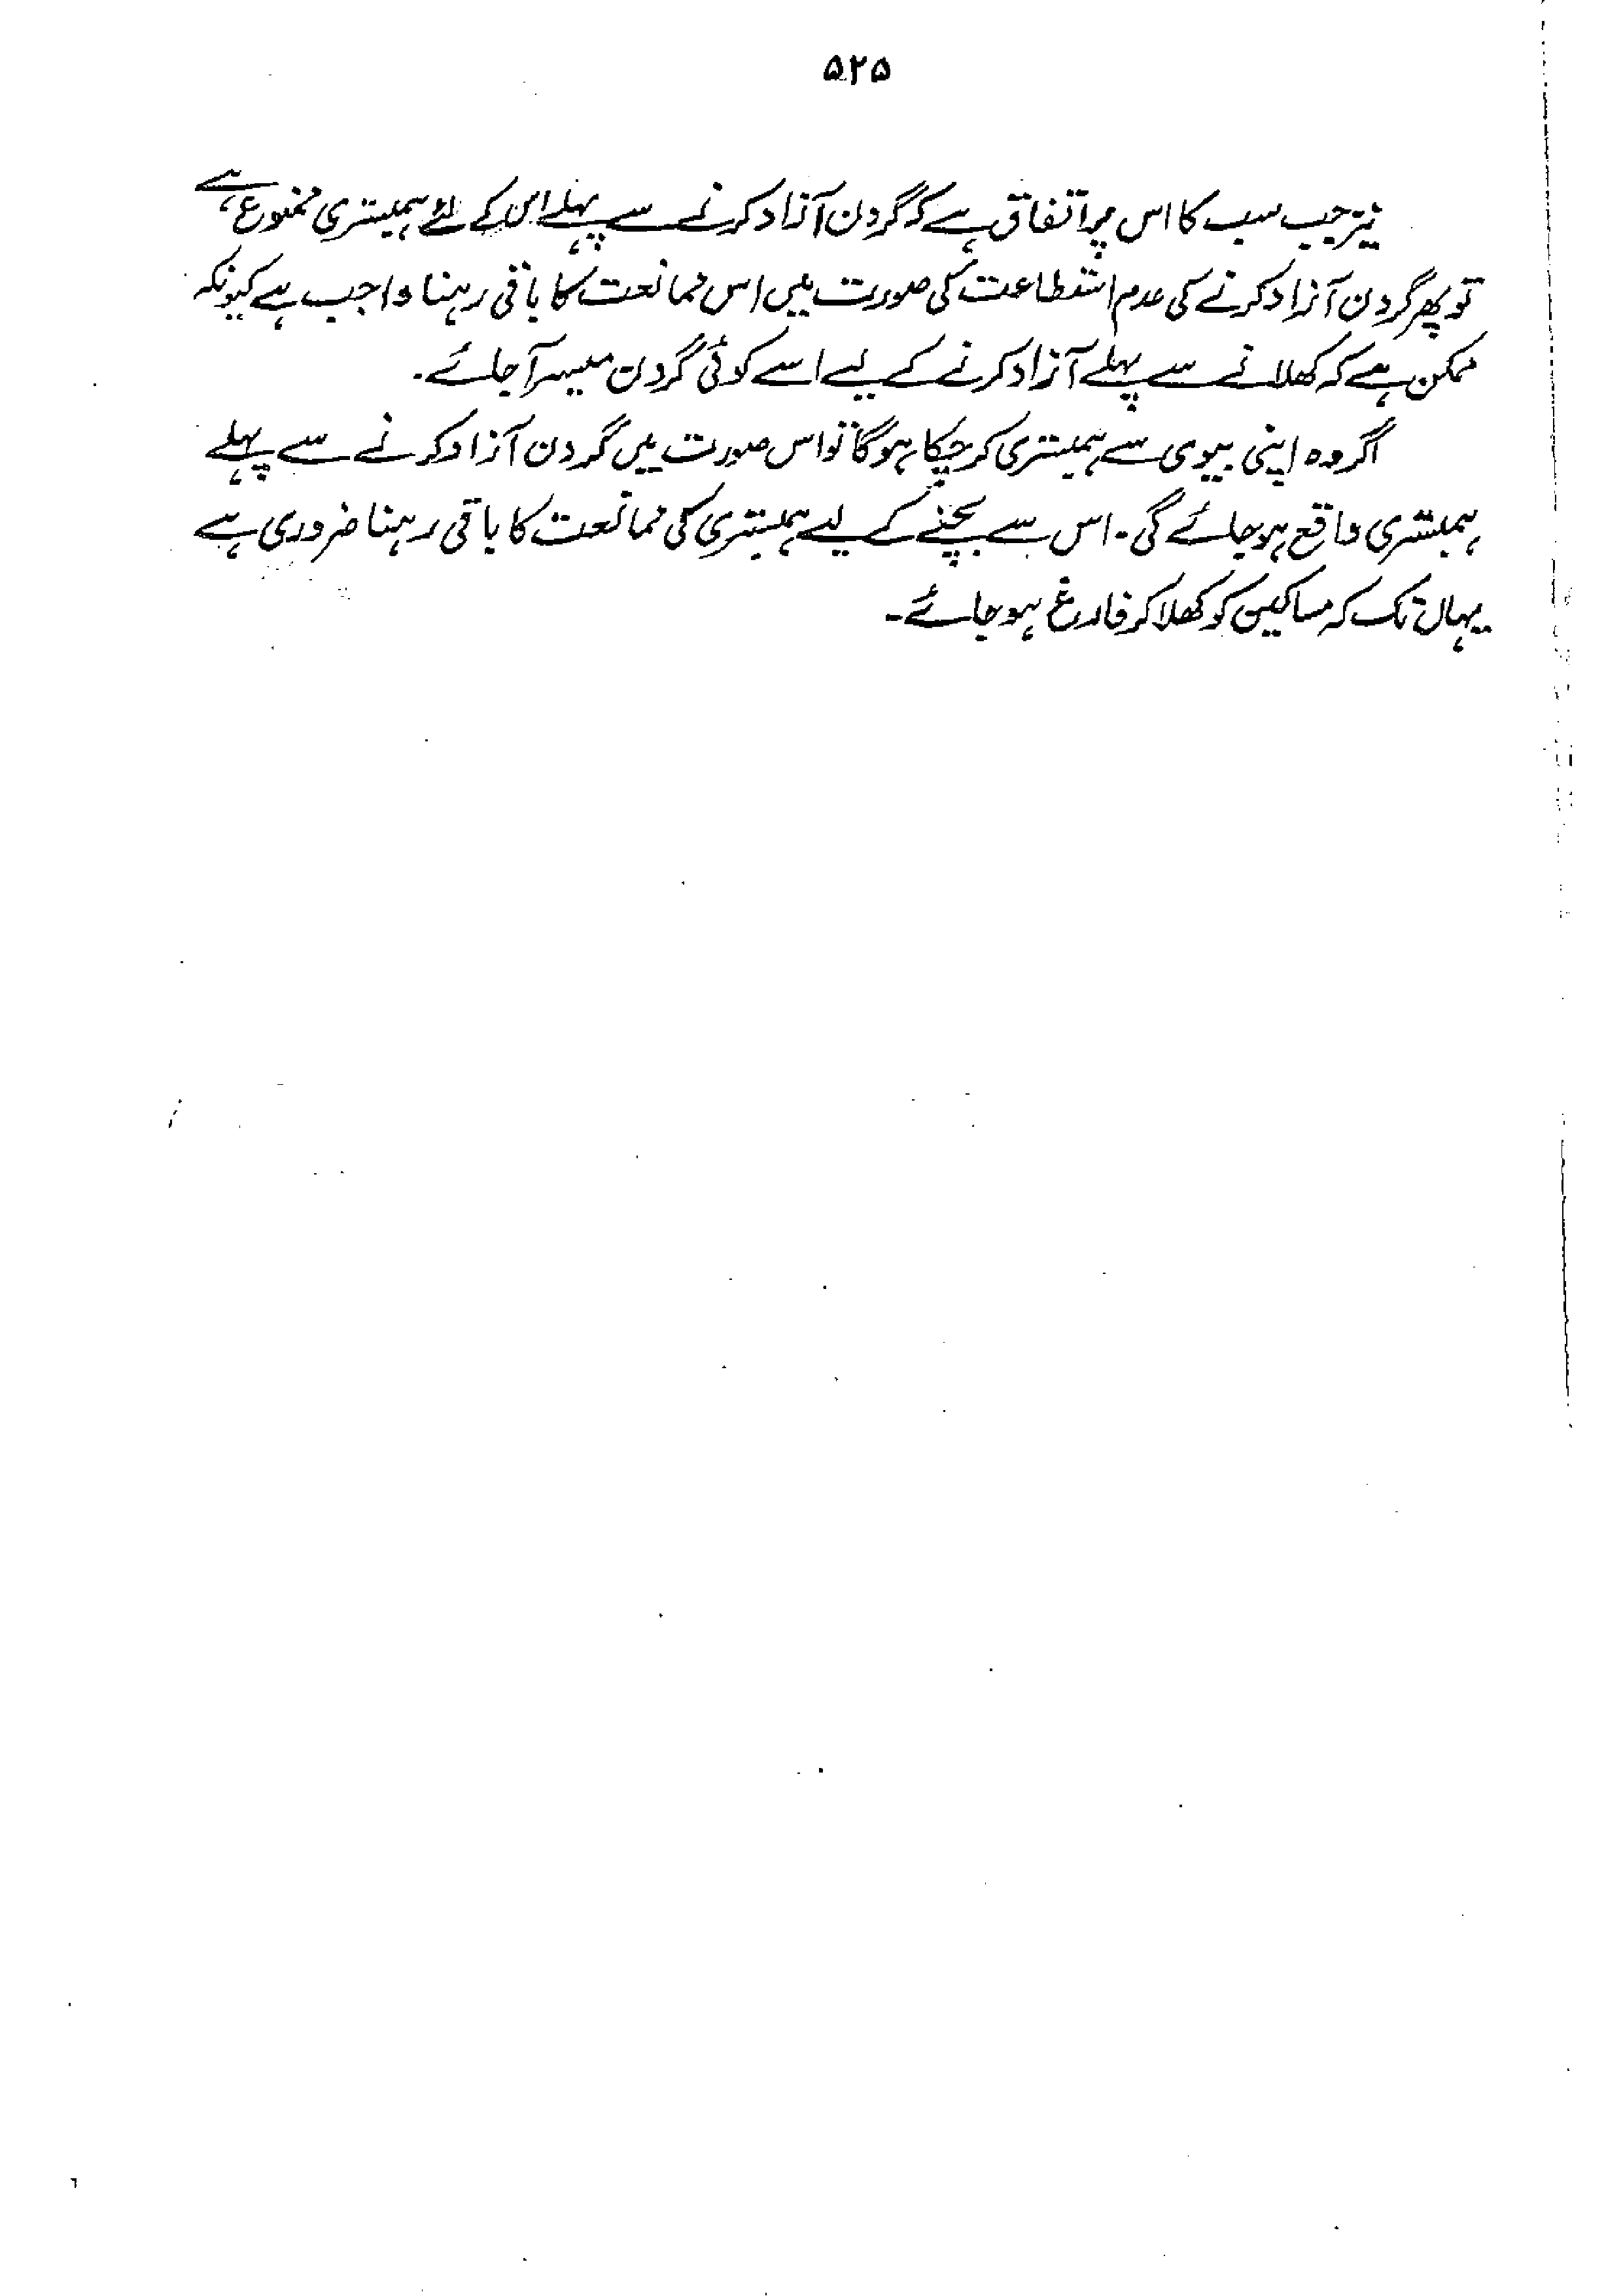 ۵۲۵
نیز جب سب کا اس پر اتفاق ہے کہ گردن آزاد کرنے سے پہلے اس کے لئے ہمبستری ممنوع ہے،
تو پھر گردن آزاد کرنے کی عدم استطاعت کی صورت میں اس ممانعت کا باقی رہنا واجب ہے کیونکہ
ممکن ہے کہ کھلانے سے پہلے آزاد کرنے کے لیے اسے کوئی گردن میسر آ جائے۔
اگر وہ اپنی بیوی سے ہمبستری کر چکا ہوگا تو اس صورت میں گردن آزاد کرنے سے پہلے
ہمبستری واقع ہو جائے گی۔ اس سے بچنے کے لیے ہمبستری کی ممانعت کا باقی رہنا ضروری ہے
یہاں تک کہ مساکین کو کھلا کر فارغ ہو جائے۔